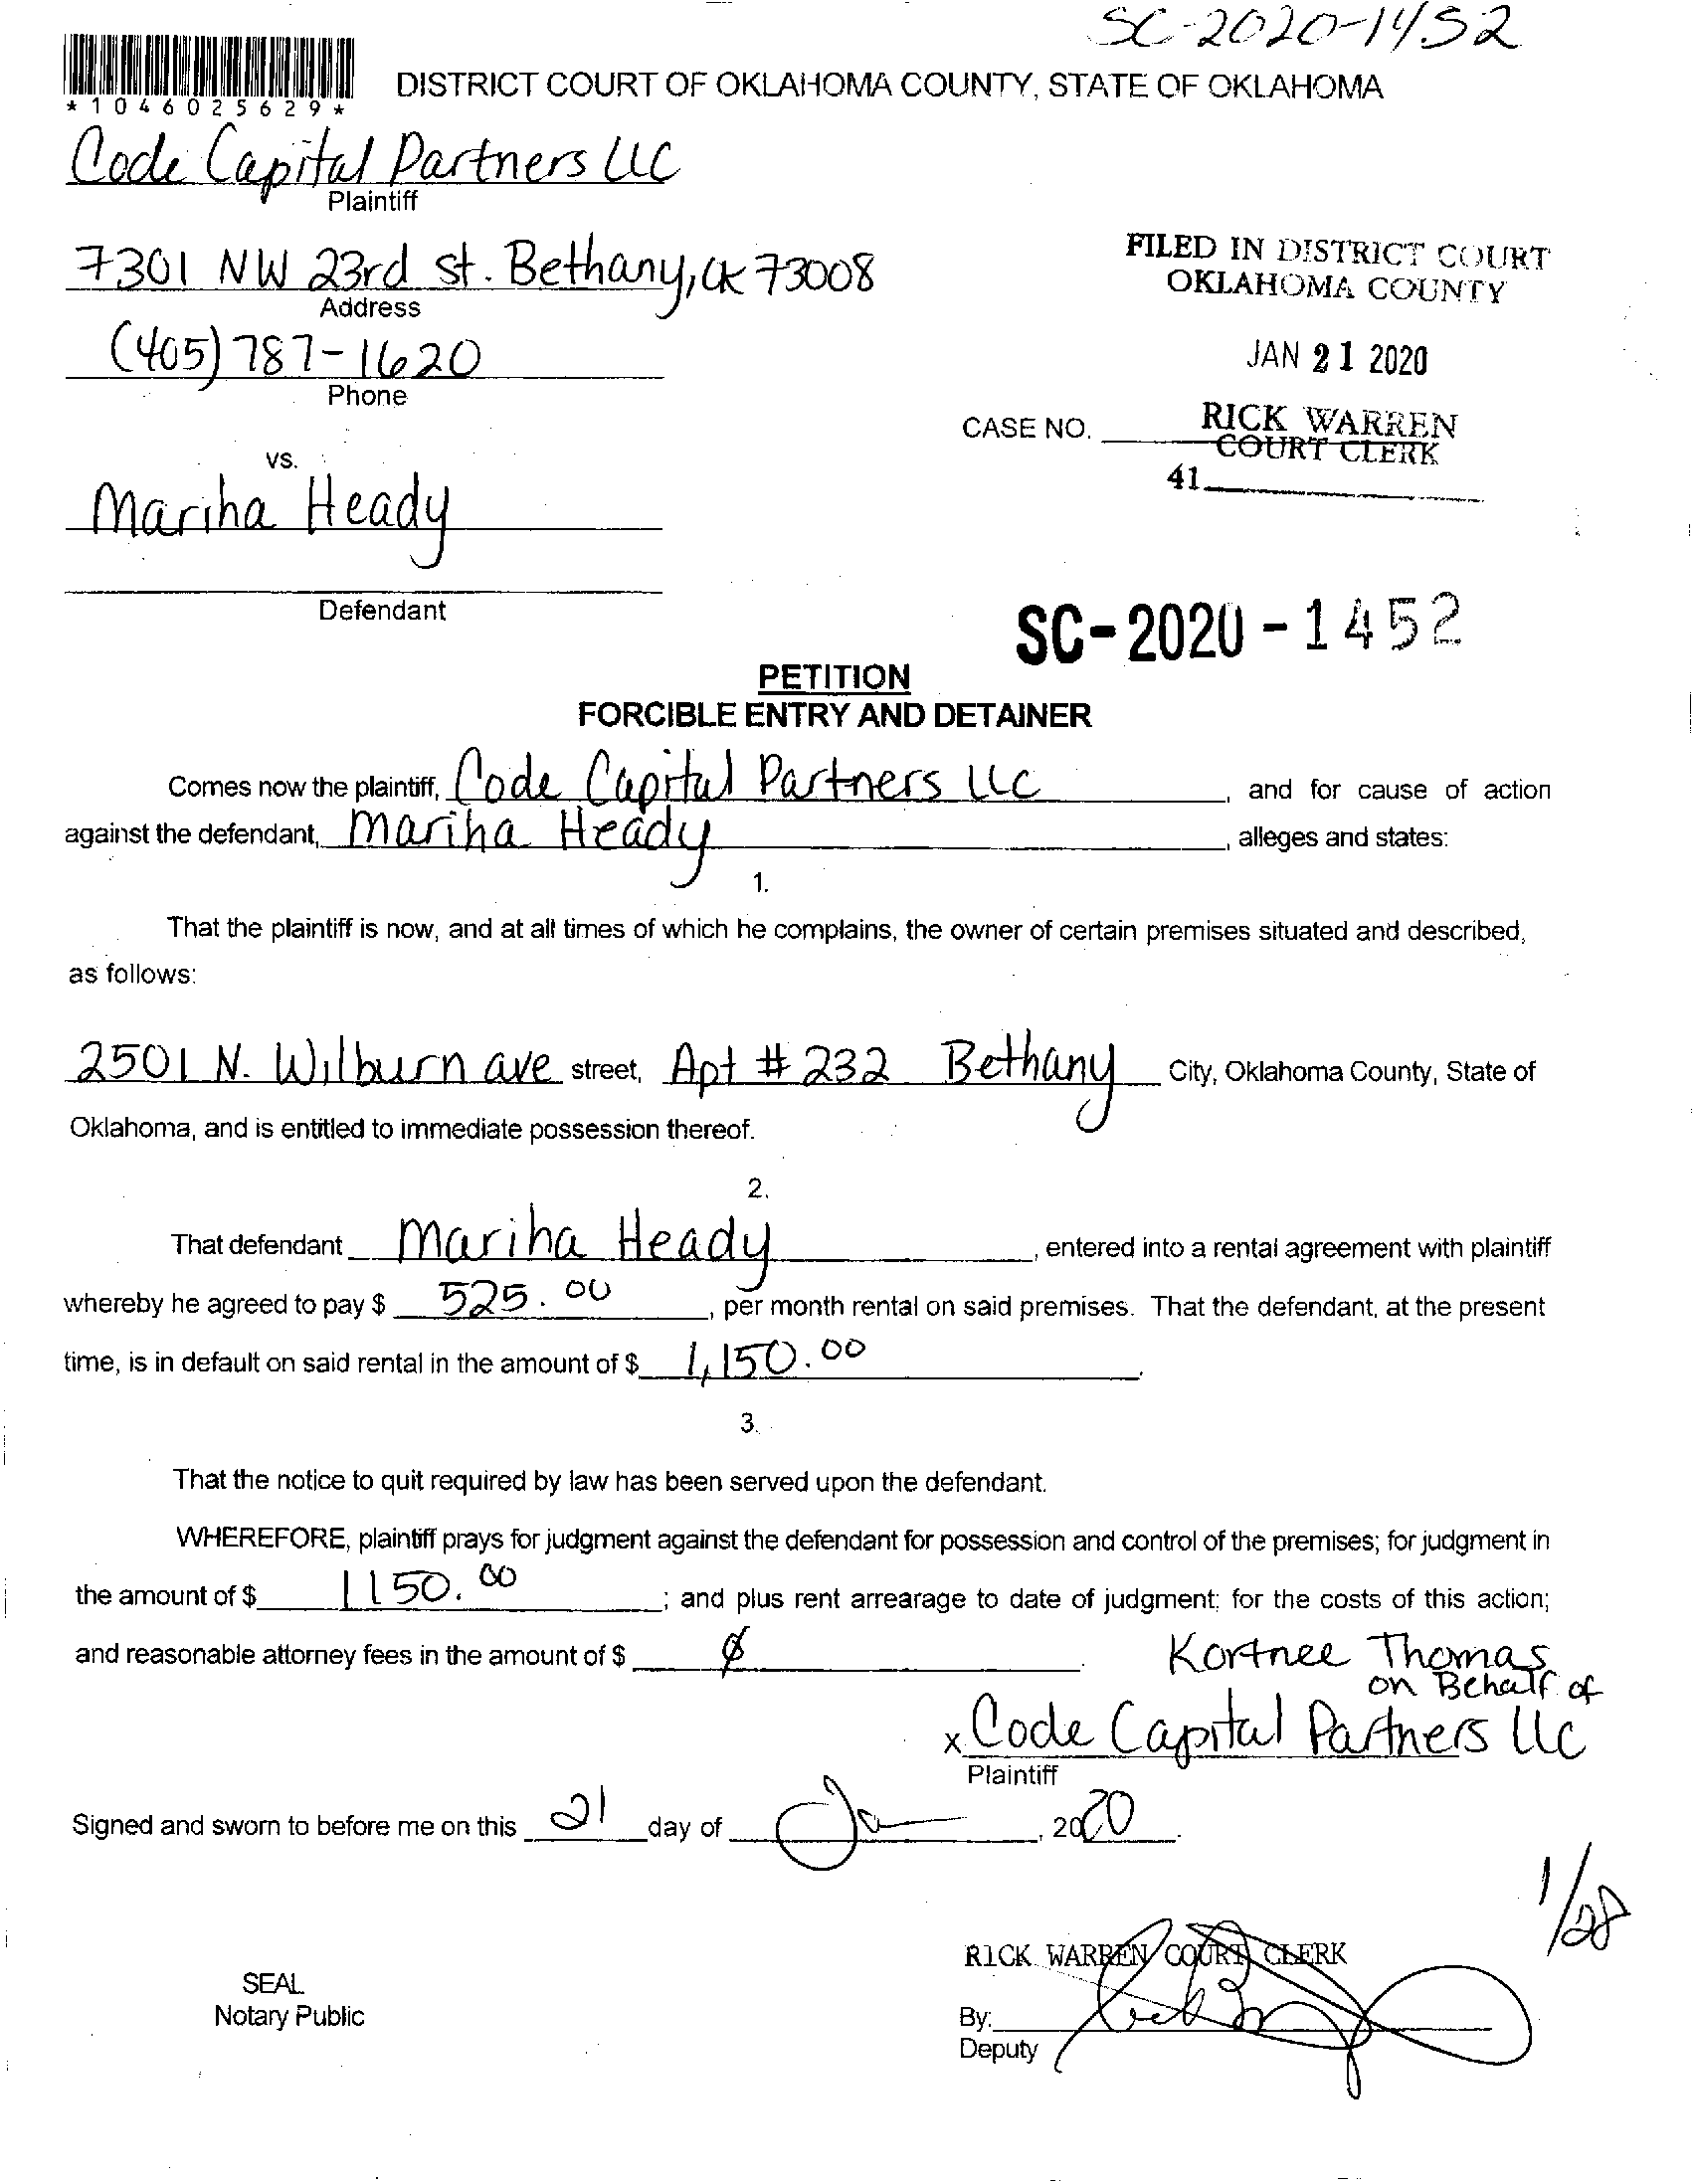 SC-2020-1452
*1046025629*
DISTRICT COURT OF OKLAHOMA COUNTY, STATE OF OKLAHOMA
Code Capital Partners LLC
Plaintiff
7301 NW 23rd st. Bethany, OK 73008
Address
(405) 787-1620
Phone
FILED IN DISTRICT COURT
OKLAHOMA COUNTY
JAN 21 2020
RICK WARREN
COURT CLERK
CASE NO.
41
vs.
Mariha Heady
Defendant
SC-2020-1452
PETITION
FORCIBLE ENTRY AND DETAINER
Comes now the plaintiff, Code Capital Partners LLC, and for cause of action
against the defendant, Mariha Heady, alleges and states:
1.
That the plaintiff is now, and at all times of which he complains, the owner of certain premises situated and described,
as follows:
2501 N. Wilburn ave street, Apt # 232 Bethany City, Oklahoma County, State of
Oklahoma, and is entitled to immediate possession thereof.
2.
That defendant Mariha Heady, entered into a rental agreement with plaintiff
whereby he agreed to pay $ 525.00, per month rental on said premises. That the defendant, at the present
time, is in default on said rental in the amount of $ 1,150.00.
3.
That the notice to quit required by law has been served upon the defendant.
WHEREFORE, plaintiff prays for judgment against the defendant for possession and control of the premises; for judgment in
the amount of $ 1150.00; and plus rent arrearage to date of judgment; for the costs of this action;
and reasonable attorney fees in the amount of $ ∅.
Kortnee Thomas
on Behalf of
x Code Capital Partners LLC
Plaintiff
Signed and sworn to before me on this 21 day of Jan, 2020.
1/28
RICK WARREN COURT CLERK
SEAL
Notary Public
By:
Deputy